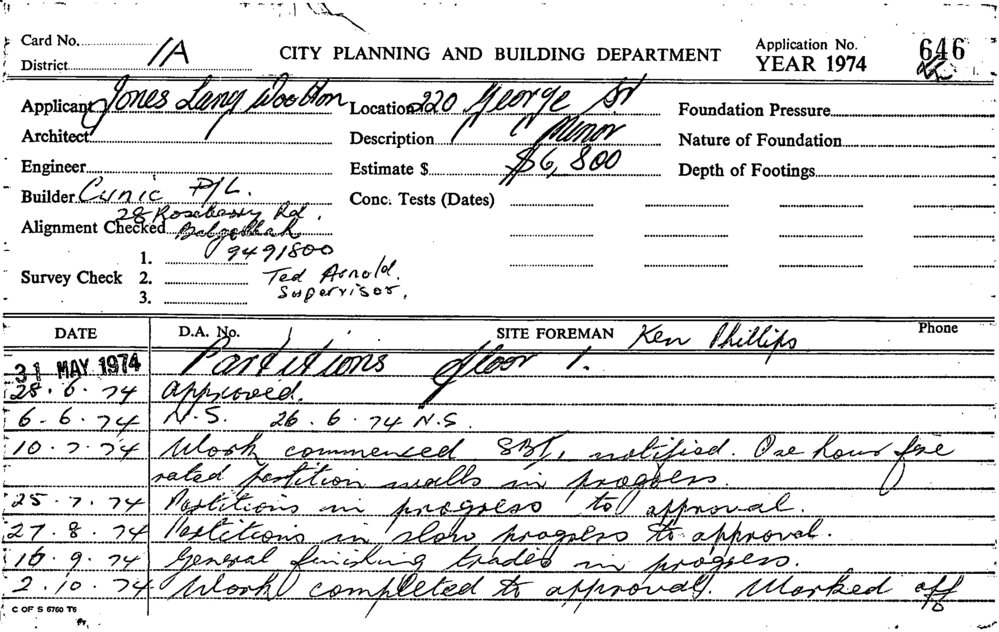 Card No. 1A
District
CITY PLANNING AND BUILDING DEPARTMENT
Application No. 646
YEAR 1974
Applicant Jones Lang Wootton Location 220 George St Foundation Pressure
Architect Description Minor Nature of Foundation
Engineer Estimate $ $6,800 Depth of Footings
Builder Cynic P/L. Conc. Tests (Dates)
28 Roseberry Rd.
Alignment Checked Balgowlah
1. 9491800
Survey Check 2. Ted Arnold.
3. Supervisor.
DATE D.A. No. SITE FOREMAN Ken Phillips Phone
31 MAY 1974 Partitions floor 1.
28.6.74 Approved.
6.6.74 N.S. 26.6.74 N.S.
10.7.74 Work commenced notified. One hour fire
rated partition walls in progress.
25.7.74 Partitions in progress to approval.
27.8.74 Partitions in slow progress to approval.
16 9.74 General finishing trades in progress.
2.10.74 Work completed to approval. Marked off
C OF S 6760 T6